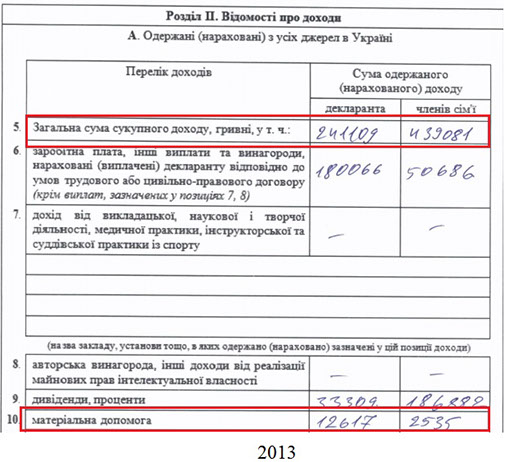 Розділ II. Відомості про доходи
А. Одержані (нараховані) з усіх джерел в Україні
Перелік доходів
Сума одержаного
(нарахованого) доходу
декларанта членів сім'ї
5. Загальна сума сукупного доходу, гривні, у т. ч.: 241109 439081
6. заробітна плата, інші виплати та винагороди,
нараховані (виплачені) декларанту відповідно до
умов трудового або цивільно-правового договору
(крім виплат, зазначених у позиціях 7, 8) 180066 50686
7. дохід від викладацької, наукової і творчої
діяльності, медичної практики, інструкторської та
суддівської практики із спорту – –
(назва закладу, установи тощо, в яких одержано (нараховано) зазначені у цій позиції доходи)
8. авторська винагорода, інші доходи від реалізації
майнових прав інтелектуальної власності – –
9. дивіденди, проценти 33309
10. матеріальна допомога 12617 2535
2013